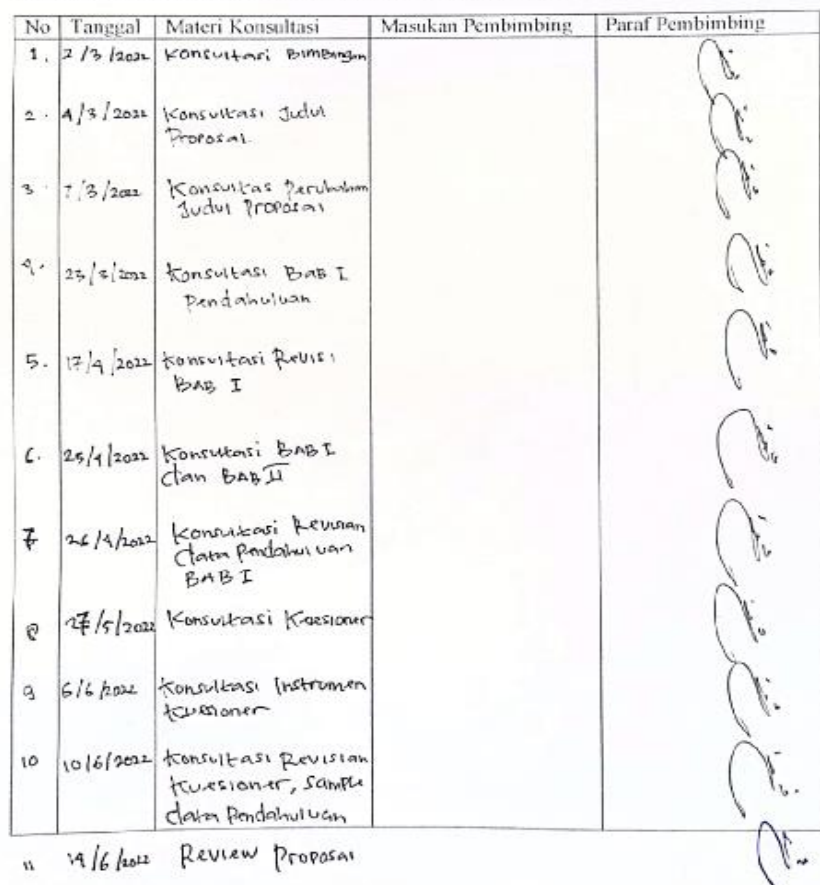 No Tanggal Materi Konsultasi Masukan Pembimbing Paraf Pembimbing
1. 2/3/2022 Konsultasi Bimbingan
2. 4/3/2022 Konsultasi Judul
Proposal
3. 7/3/2022 Konsultas Perubahan
Judul Proposal
4. 23/3/2022 Konsultasi Bab I
Pendahuluan
5. 17/4/2022 Konsultasi Revisi
BAB I
6. 25/4/2022 Konsultasi BAB I
dan BAB II
7 26/4/2022 Konsultasi Revisian
data Pendahuluan
BAB I
8 27/5/2022 Konsultasi Kuesioner
9 6/6/2022 Konsultasi Instrumen
Kuesioner
10 10/6/2022 Konsultasi Revisian
Kuesioner, Sample
data Pendahuluan
11 14/6/2022 Review Proposal